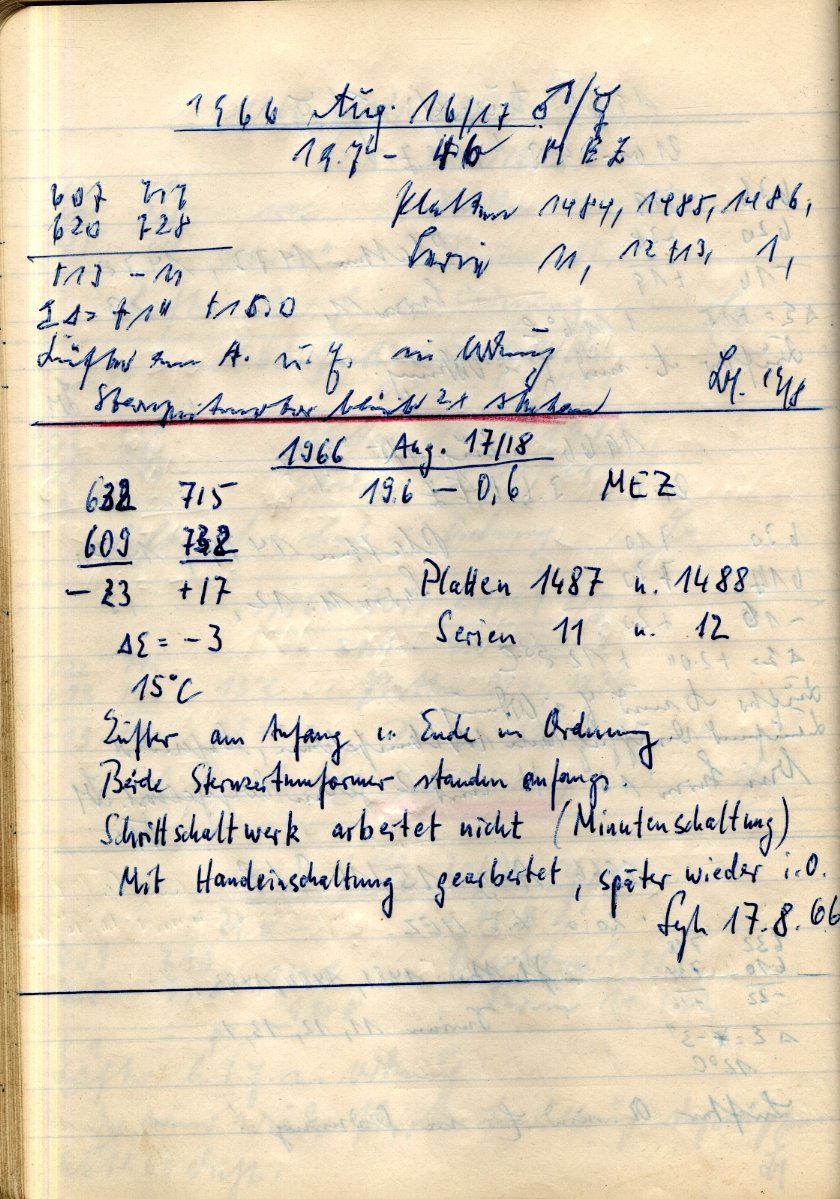 1966 Aug. 16/17 ♂/☿
19.7ʰ – MEZ
607 717
620 728
+13 – 11
Platten 1484, 1485, 1486,
Serien 11, 12+13, 1,
Lüfter am A. u. E. in Ordnung
bleibt 2x stehen
1966 Aug. 17/18
632 715 19.6 – 0,6 MEZ
609 732
– 23 +17 Platten 1487 u. 1488
Δε = – 3 Serien 11 u. 12
15°C
Lüfter am Anfang u. Ende in Ordnung.
Beide Sternzeitumformer standen anfangs.
Schrittschaltwerk arbeitet nicht (Minutenschaltung)
Mit Handeinschaltung gearbeitet, später wieder i.O.
17.8.66